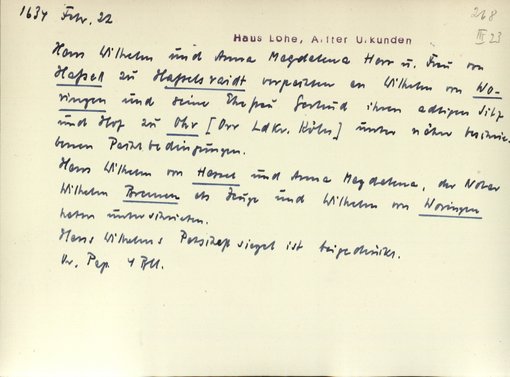 1634 Febr. 22
268
III 23
Haus Lohe, Älter Urkunden
Hans Wilhelm und Anna Magdalena Herr u. Frau von
Hassell zu Hasselsraidt verpachten an Wilhelm von Wo-
ringen und seine Ehefrau Gertrud ihren adligen Sitz
und Hof zu Ohr [Orr Ldkr. Köln] unter näher beschrie-
benen Pachtbedingungen.
Hans Wilhelm von Hassel und Anna Magdalena, der Notar
Wilhelm Bremen als Zeuge und Wilhelm von Woringen
haben unterschrieben.
Hans Wilhelms Petschaftsiegel ist beigedrückt.
Or. Pap. 4 Bll.